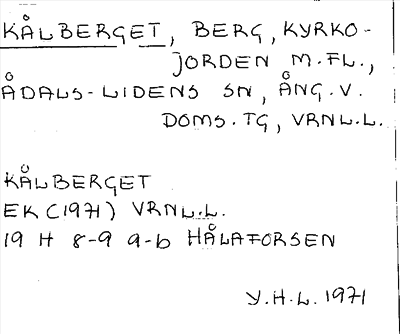 KÅLBERGET, BERG, KYRKO-
JORDEN M.FL.,
ÅDALS-LIDENS SN, ÅNG.V.
DOMS.TG, VRNL.L.
KÅLBERGET
EK (1971) VRNL.L.
19 H 8-9 a-b HÅLAFORSEN
Y.H-L. 1971